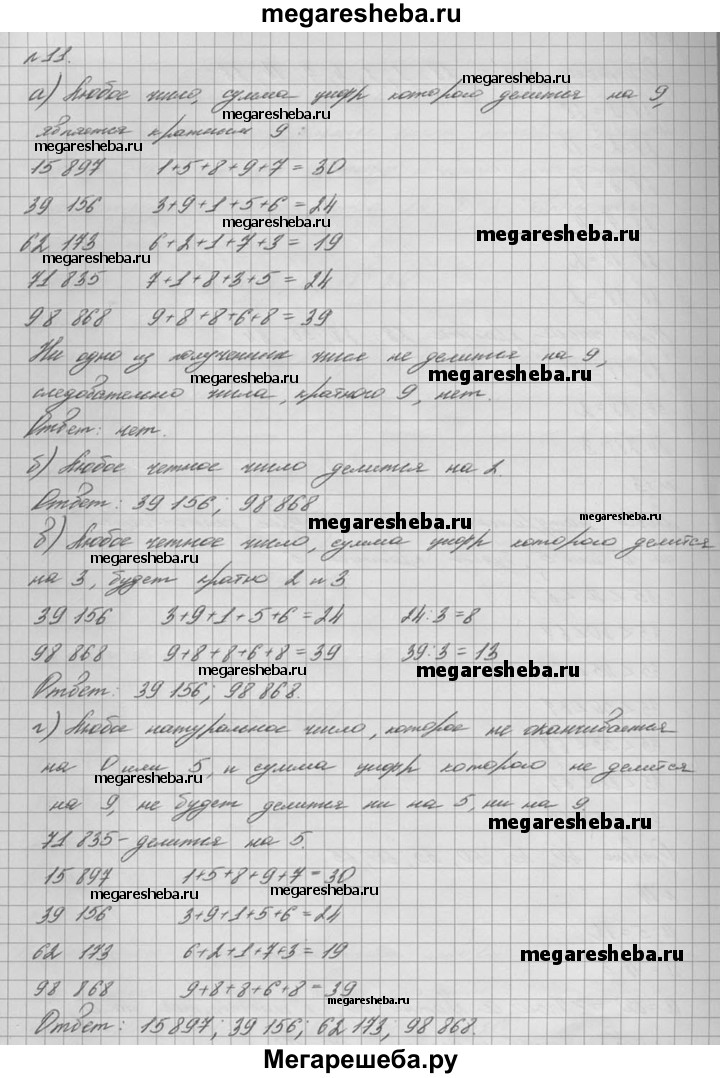 megaresheba.ru
№11.
megaresheba.ru
а) Любое число, сумма цифр которого делится на 9,
является кратным 9:
megaresheba.ru
15 897 1+5+8+9+7=30
megaresheba.ru
39 156 3+9+1+5+6=24
megaresheba.ru
62 173 6+2+1+7+3=19
megaresheba.ru
megaresheba.ru
71 835 7+1+8+3+5=24
98 868 9+8+8+6+8=39
Ни одно из полученных чисел не делится на 9,
megaresheba.ru
megaresheba.ru
следовательно числа, кратного 9, нет.
Ответ: нет.
б) Любое четное число делится на 2.
Ответ: 39 156; 98 868
megaresheba.ru
megaresheba.ru
в) Любое четное число, сумма цифр которого делится
megaresheba.ru
на 3, будет кратно 2 и 3
39 156 3+9+1+5+6=24 24:3=8
98 868 9+8+8+6+8=39 39:3=13
megaresheba.ru
megaresheba.ru
Ответ: 39 156; 98 868.
г) Любое натуральное число, которое не оканчивается
на 0 или 5, и сумма цифр которого не делится
megaresheba.ru
на 9, не будет делится ни на 5, ни на 9.
megaresheba.ru
71 835 - делится на 5.
15 897 1+5+8+9+7=30
megaresheba.ru
megaresheba.ru
39 156 3+9+1+5+6=24
62 173 6+2+1+7+3=19
megaresheba.ru
98 868 9+8+8+6+8=39
megaresheba.ru
Ответ: 15 897; 39 156; 62 173; 98 868.
Мегарешеба.ру